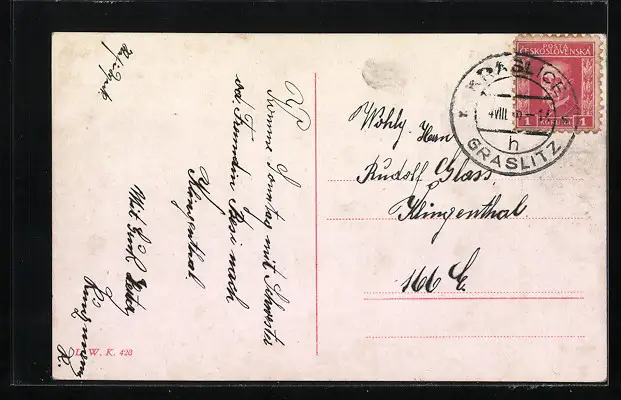 Komme Sonntag mit Schwester
od. Freundin Resi nach
Klingenthal
Mit Gruß
L. W. K. 423
POSTA
ČESKOSLOVENSKÁ
1 1
KRASLICE
GRASLITZ
h
Wohlg. Herrn
Rudolf Glass,
Klingenthal
166 E.